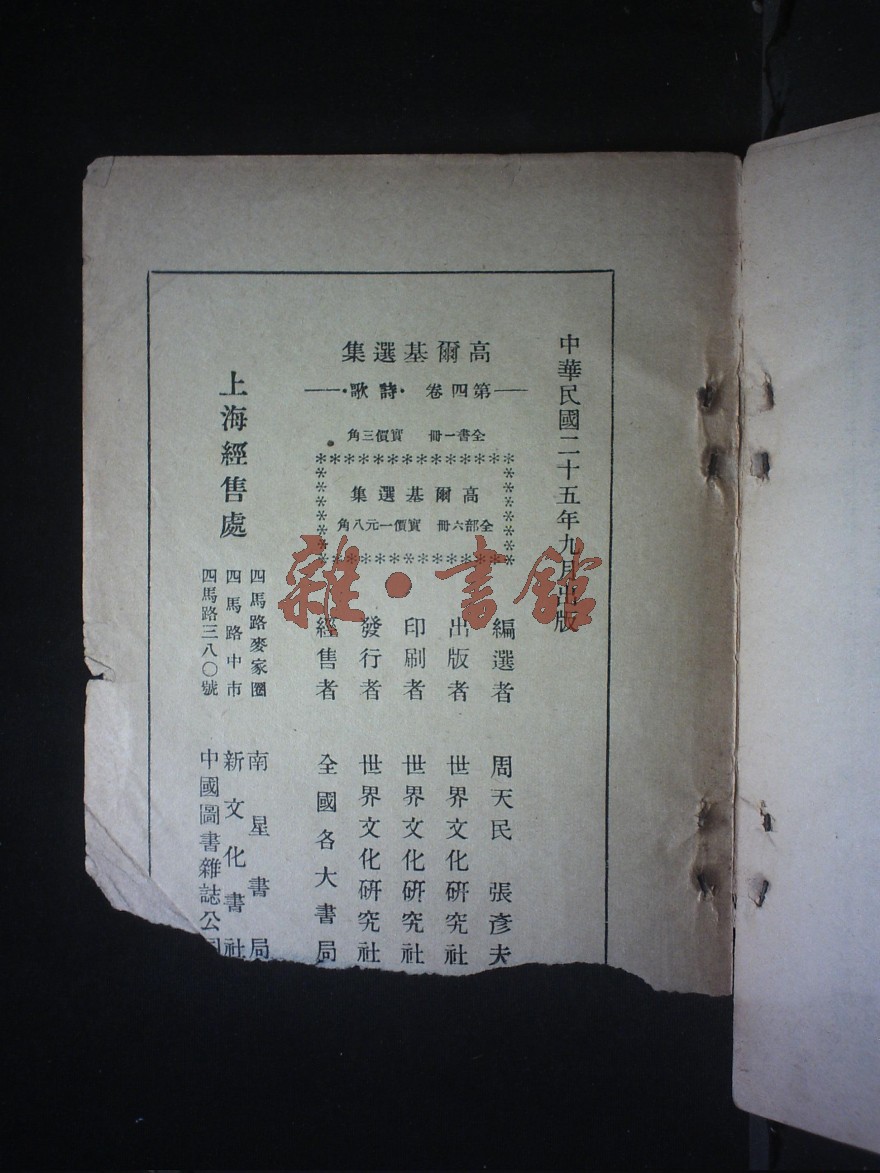 中華民國二十五年九月出版
高爾基選集
——第四卷·詩歌·——
全書一冊 實價三角
高爾基選集
全部六冊 實價一元八角
編選者 周天民 張彥夫
出版者 世界文化研究社
印刷者 世界文化研究社
發行者 世界文化研究社
經售者 全國各大書局
上海經售處
四馬路麥家圈 南星書局
四馬路中市 新文化書社
四馬路三八〇號 中國圖書雜誌公司
雜·書館